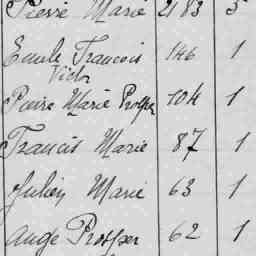 Pierre Marie 2183 5
Emile Francois 146 1
Victor
Pierre Marie Prosper 104 1
Francis Marie 87 1
Julien Marie 63 1
Ange Prosper 62 1